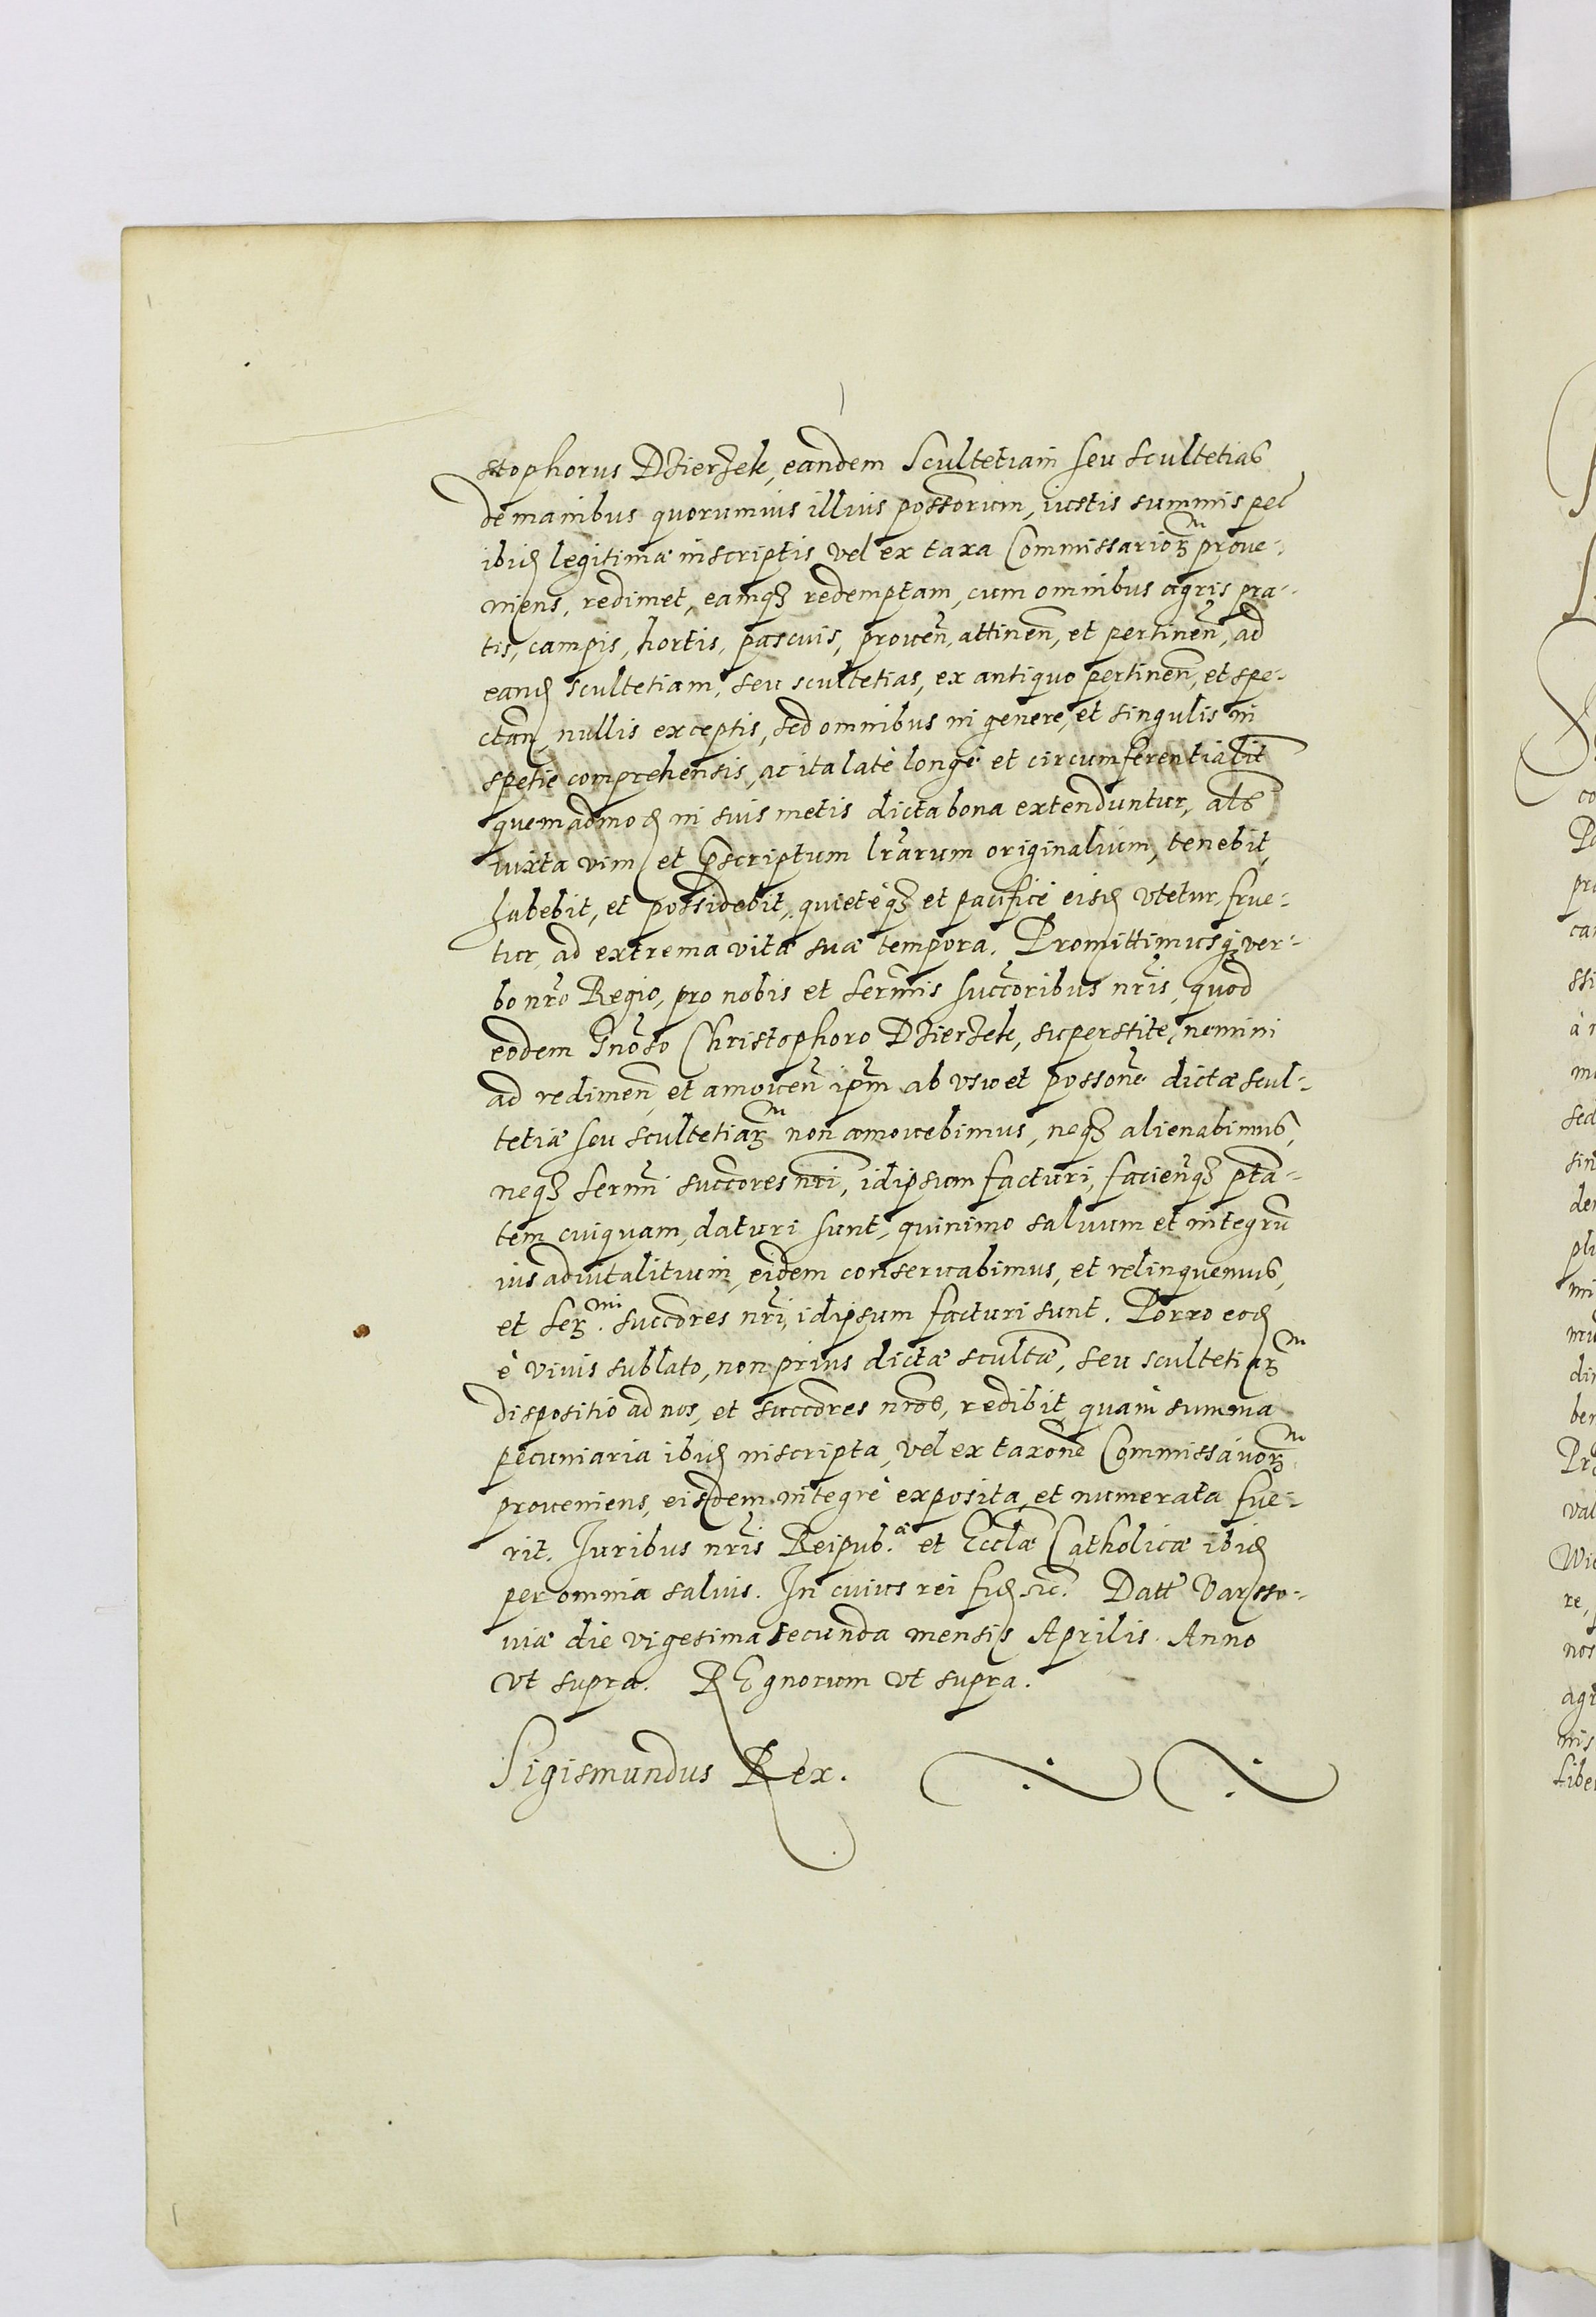 stophorus Dzierzek, eandem Scultetiam seu scultetias
de manibus quorumuis illius possorum, iustis summis pec
ibid legitimæ inscriptis vel ex taxa Commissarioꝝm proue-
niens, redimet, eamqꝫ redemptam, cum omnibus agris pra-
tis, campis, hortis, pascuis, prouen, attinen, et pertinen, ad
eand scultetiam, seu scultetias, ex antiquo pertinen, et spe-
ctan, nullis exceptis, sed omnibus in genere, et singulis in
spetie comprehensis, ac ita late longe et circumferentialit
quemadmod in suis metis dicta bona extenduntur, als
iuxta vim et pscriptum lrarum originalium, tenebit,
habebit, et possidebit, quieteqꝫ et pacifice eisd vtetur, frue-
tur, ad extrema vitæ suæ tempora. Promittimusqꝫ ver-
bo nro Regio, pro nobis et sermis succoribus nris, quod
eodem Gnoso Christophoro Dzierzek, superstite, nemini
ad redimen, et amouen ipm ab vsu et possone dictæ scul-
tetiæ seu scultetiaꝝm non amouebimus, neqꝫ alienabimus,
neqꝫ sermi succores nri, idipsum facturi, facienqꝫ pta-
tem cuiquam, daturi sunt, quinimo saluum et integru
ius aduitalitium, eidem conseruabimus, et relinquemus,
et Serꝫ.mi succores nri, idipsum facturi sunt. Porro eod
è viuis sublato, non prius dictæ scultæ, seu scultetiaꝝm
dispositio ad nos, et succores nros, redibit, quam summa
pecuniaria ibid inscripta, vel ex taxone Commissarioꝝm
proueniens, eisdem integrè exposita et numerata fue-
rit. Iuribus nris Reipub.æ et Ecclæ Catholicæ ibid
per omnia saluis. In cuius rei fid sic. Datt Varsso-
uiæ die vigesima secunda mensis Aprilis. Anno
vt supra. REgnorum vt supra.
Sigismundus Rex.